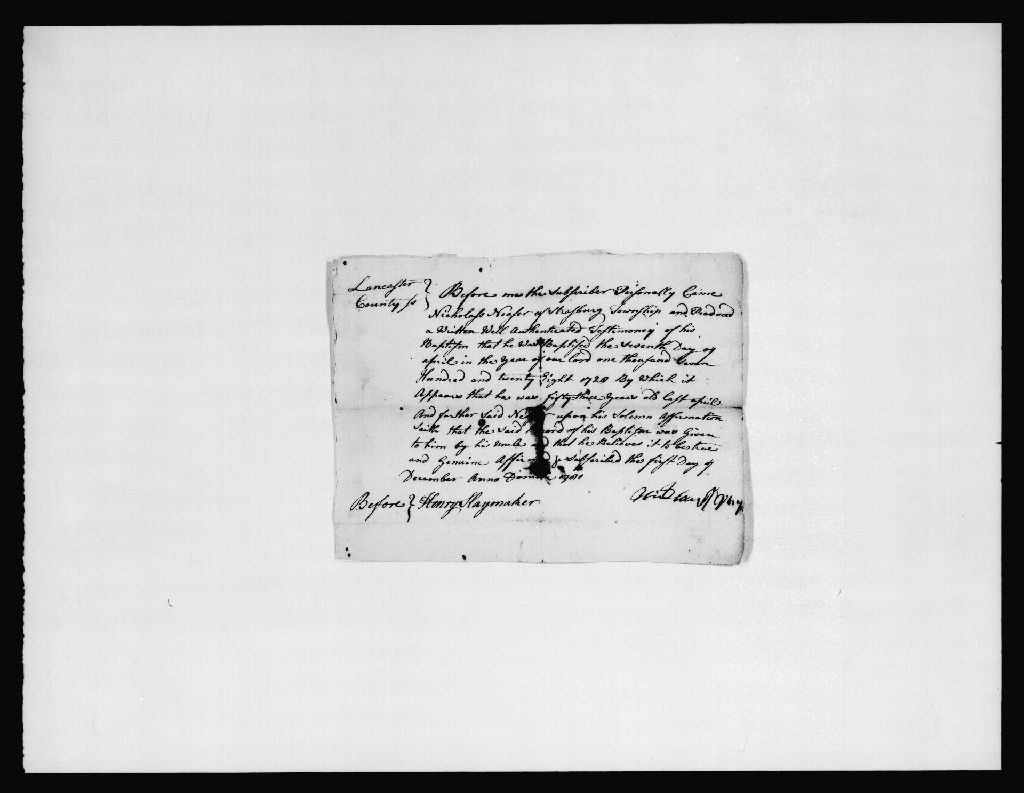 Lancaster
County ss } Before me the Subscriber Personally Came
Nicholass Neaser of Strasburg Township and Producd
a Written Well Authenticated Testimoney of his
Baptism that he was Baptised the Seventh Day of
april in the year of our lord one thousand Seven
Hundred and twenty Eight 1728 By Which it
Appears that he was fifty three years old last april
And further Said upon his Solemn Affirmation
Saith that the said Record of his Baptism was Given
to him by his unkle and that he Believes it to be true
and Genuine Affirmed & Subscribed the first Day of
December Anno Domini 1781
Before } Henry Slaymaker